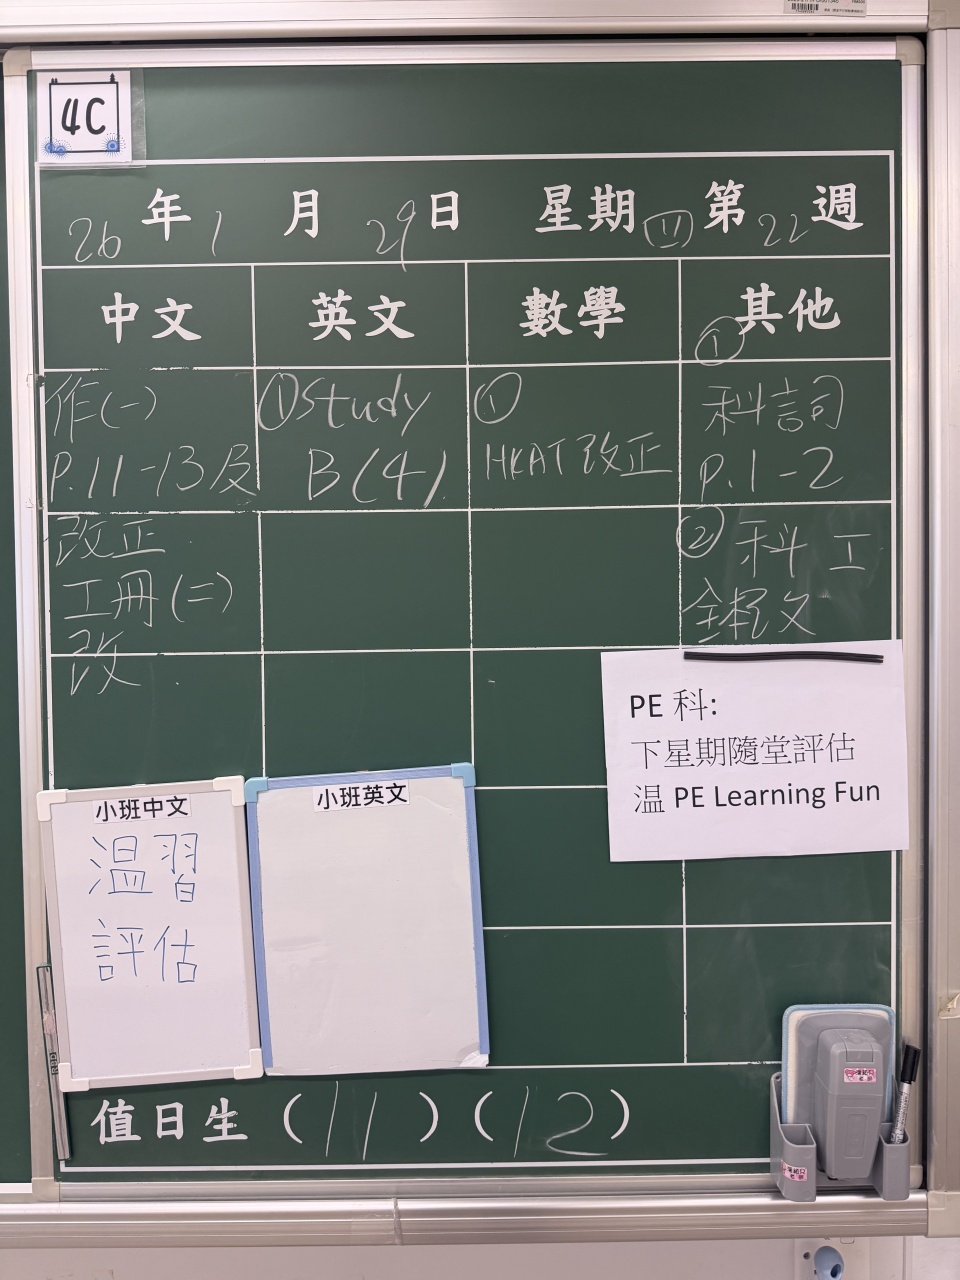 4C
26年1月29日 星期四 第22週
中文 英文 數學 其他
作(一)
P.11-13及
改正
工冊(二)
改
①Study
B(4)
①
HKAT改正
①
科詞
P.1-2
②科工
全概文
PE 科:
下星期隨堂評估
温 PE Learning Fun
小班中文
温習
評估
小班英文
值日生(11)(12)